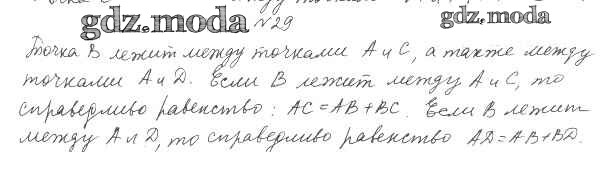 gdz.moda №29 gdz.moda
Точка В лежит между точками А и С, а также между
точками А и D. Если В лежит между А и С, то
справедливо равенство: АС=АВ+ВС. Если В лежит
между А и D, то справедливо равенство AD=AB+BD.